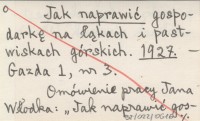 Jak naprawić gospo-
darkę na łąkach i past-
wiskach górskich. 1927. -
Gazda 1, nr 3.
Omówienie pracy Jana
Włodka: "Jak naprawić gos-